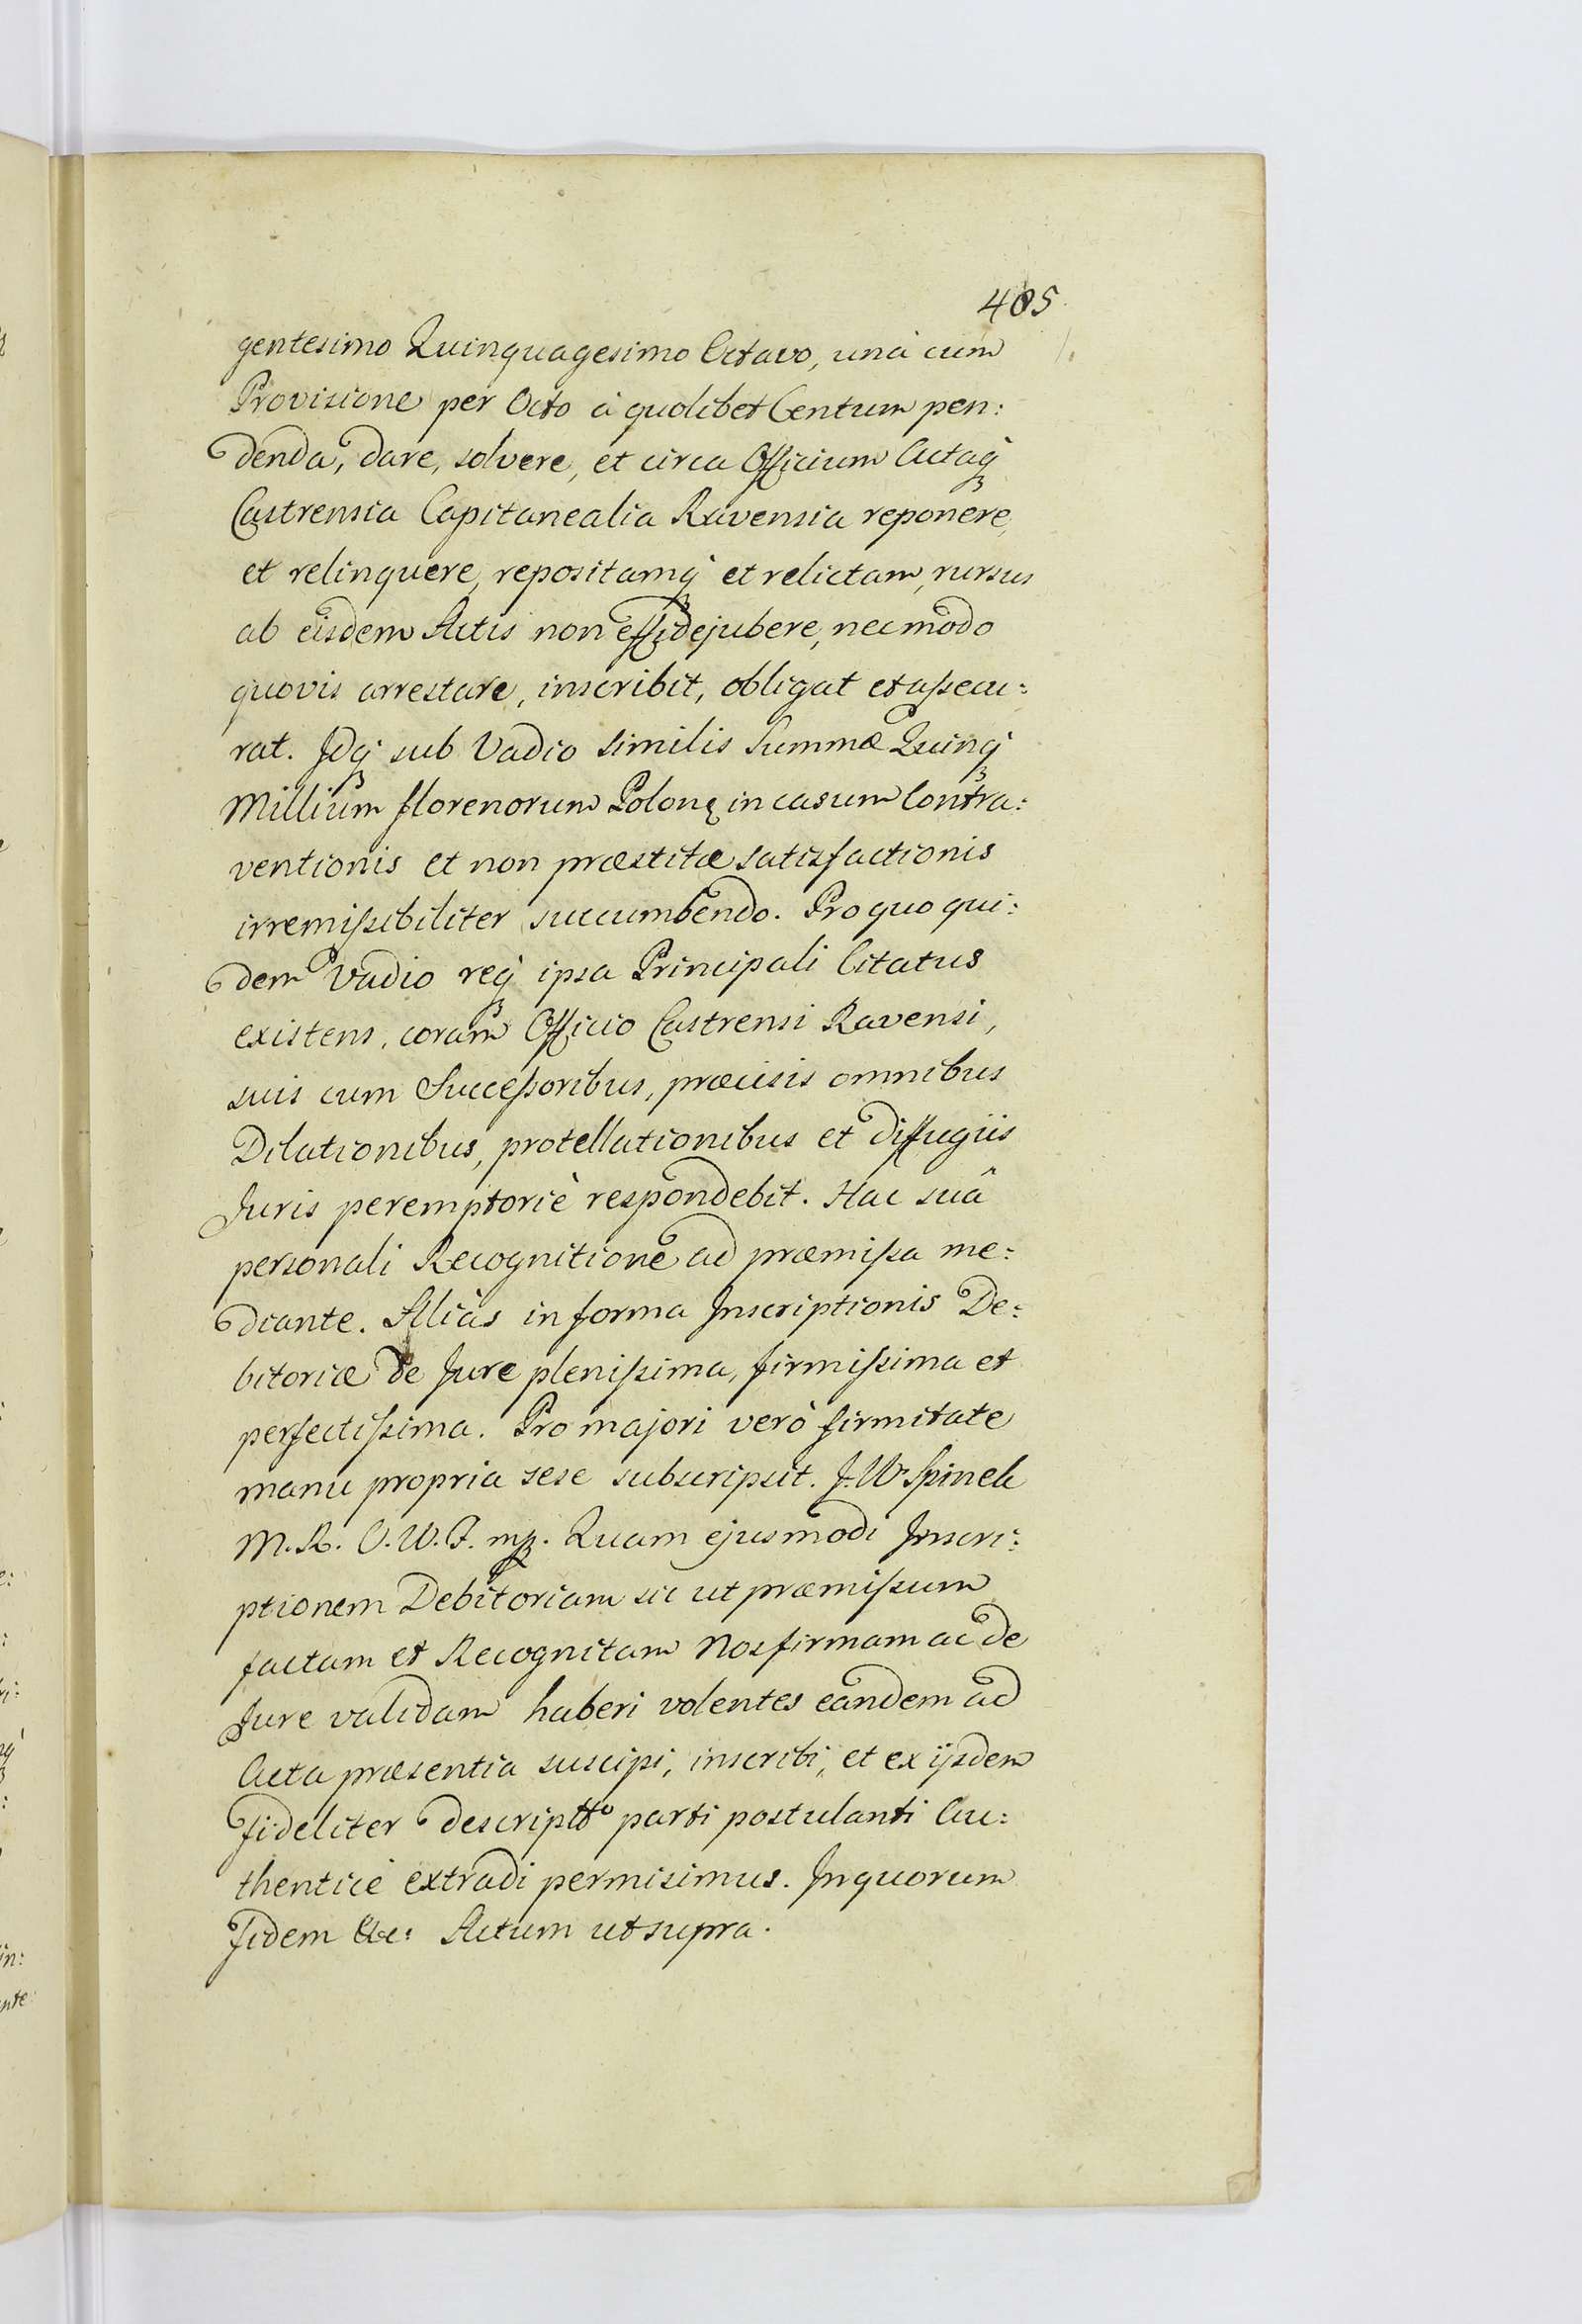 405.
gentesimo Quinquagesimo Octavo, unà cum
Provisione per Octo à quolibet Centum pen:
denda, dare, solvere, et circa Officium Actaq̨
Castrensia Capitanealia Ravensia reponere,
et relinquere, repositamq̨ et relictam, rursus
ab eisdem Actis non effidejubere, nec modo
quovis arrestare, inscribit, obligat et assecu:
rat. Idq̨ sub Vadio similis Summæ Quinq̨
Millium florenorum Polonę in casum Contra:
ventionis et non præstitæ satisfactionis
irremissibiliter succumbendo. Pro quo qui:
dem Vadio req̨ ipsa Principali Citatus
existens, coram Officio Castrensi Ravensi,
suis cum Successoribus, præcisis omnibus
Dilationibus, protellationibus et diffugiis
Juris peremptoriè respondebit. Hac suâ
personali Recognitione ad præmissa me:
diante. Aliàs in forma Inscriptionis De:
bitoriæ de Jure plenissima, firmissima et
perfectissima. Pro majori verò firmitate
manu propria sese subscripsit. J. W. Spinek
M. R. O. W. J. mp. Quam ejusmodi Inscri:
ptionem Debitoriam sic ut præmissum
factam et Recognitam Nos firmam ac de
Jure validam haberi volentes eandem ad
Acta præsentia suscipi, inscribi, et ex ijsdem
fideliter descriptto parti postulanti Au:
thenticè extradi permisimus. In quorum
fidem &c: Actum ut supra.